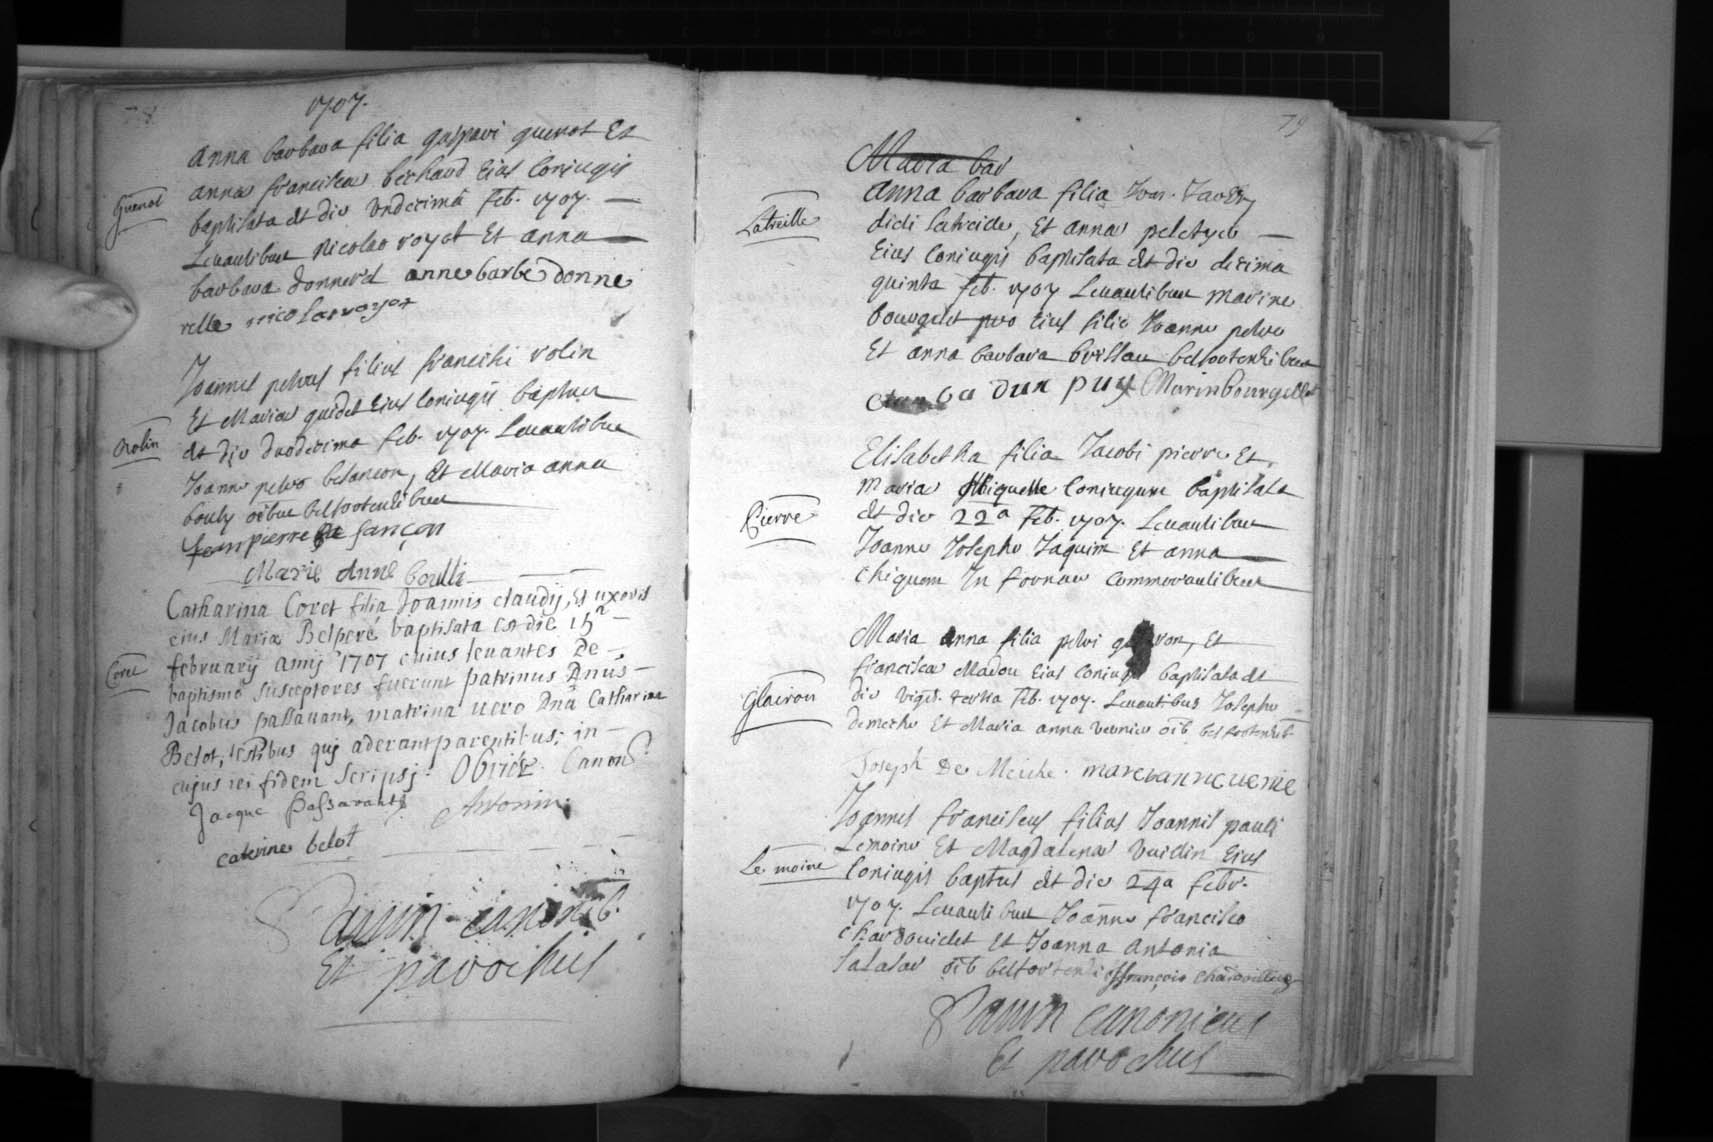 78
1707.
anna barbara filia gaspari guenot Et
anna francisca bechaud Eius Coniugis
Guenot
baptisata est die undecima feb. 1707.
Levantibus Nicolao voyot Et anna
barbara donnerel anne barbe donne
relle nicolas voyot
Joannes petrus filius francisci rolin
Et Maria guidot Eius Coniugis baptus
Rolin
est die duodecima feb. 1707. Levantibus
Joanne petro besancon, Et Maria anna
bouly oibus belfortensibus
Jean pierre Besançon
Marie Anne boulli
Catharina Coret filia Joannis claudij, et uxoris
eius Maria Belperé baptisata est die 15a
Coret
februarij annj 1707 cuius levantes De
baptismo susceptores fuerunt patrinus Dnus
Jacobus passavant, matrina vero Dna Catharina
Belot, testibus quj aderant parentibus; in
cujus rei fidem scripsj. Canon
Jacque Passavant
Antonin
caterine belot
canonic.
Et parochus
79
Maria bar
anna barbara filia Joan.
Latreille
didi Latreide, Et anna
Eius Coniugis baptisata est die decima
quinta feb. 1707 Levantibus marine
bourgelet pro Eius filio Joanne petro
Et anna barbara belfortensibus
dun puy Marin bourgellet
Elisabetha filia Jacobi pierre Et
maria Miquelle Coniugum baptisata
Pierre
est die 22a feb. 1707. Levantibus
Joanne Josepho Jaquin Et anna
chiquom In fornau commorantibus
Maria anna filia petri Et
francisca Madou Eius Coniugis baptisata est
Glairon
die viges. tertia feb. 1707. Levantibus Josepho
demeche Et Maria anna vernie oib belfortensib
Joseph De Meiche. marie anne vernie
Joannes franciscus filius Joannis pauli
Lemoine Et Magdalena vuidin Eius
Le moine
Coniugis baptus est die 24a febr.
1707. Levantibus Joanne francisco
chardouillet et Joanna Antonia
Salasar oib belfortensi françois chardouillet
canonicus
Et parochus